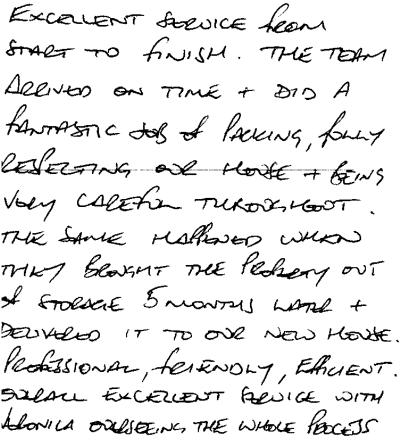 EXCELLENT SERVICE FROM
START TO FINISH. THE TEAM
ARRIVED ON TIME + DID A
FANTASTIC JOB OF PACKING, FULLY
RESPECTING OUR HOUSE + BEING
VERY CAREFUL THROUGHOUT.
THE SAME HAPPENED WHEN
THEY BROUGHT THE PROPERTY OUT
OF STORAGE 5 MONTHS LATER +
DELIVERED IT TO OUR NEW HOUSE.
PROFESSIONAL, FRIENDLY, EFFICIENT.
OVERALL EXCELLENT SERVICE WITH
MONICA OVERSEEING THE WHOLE PROCESS